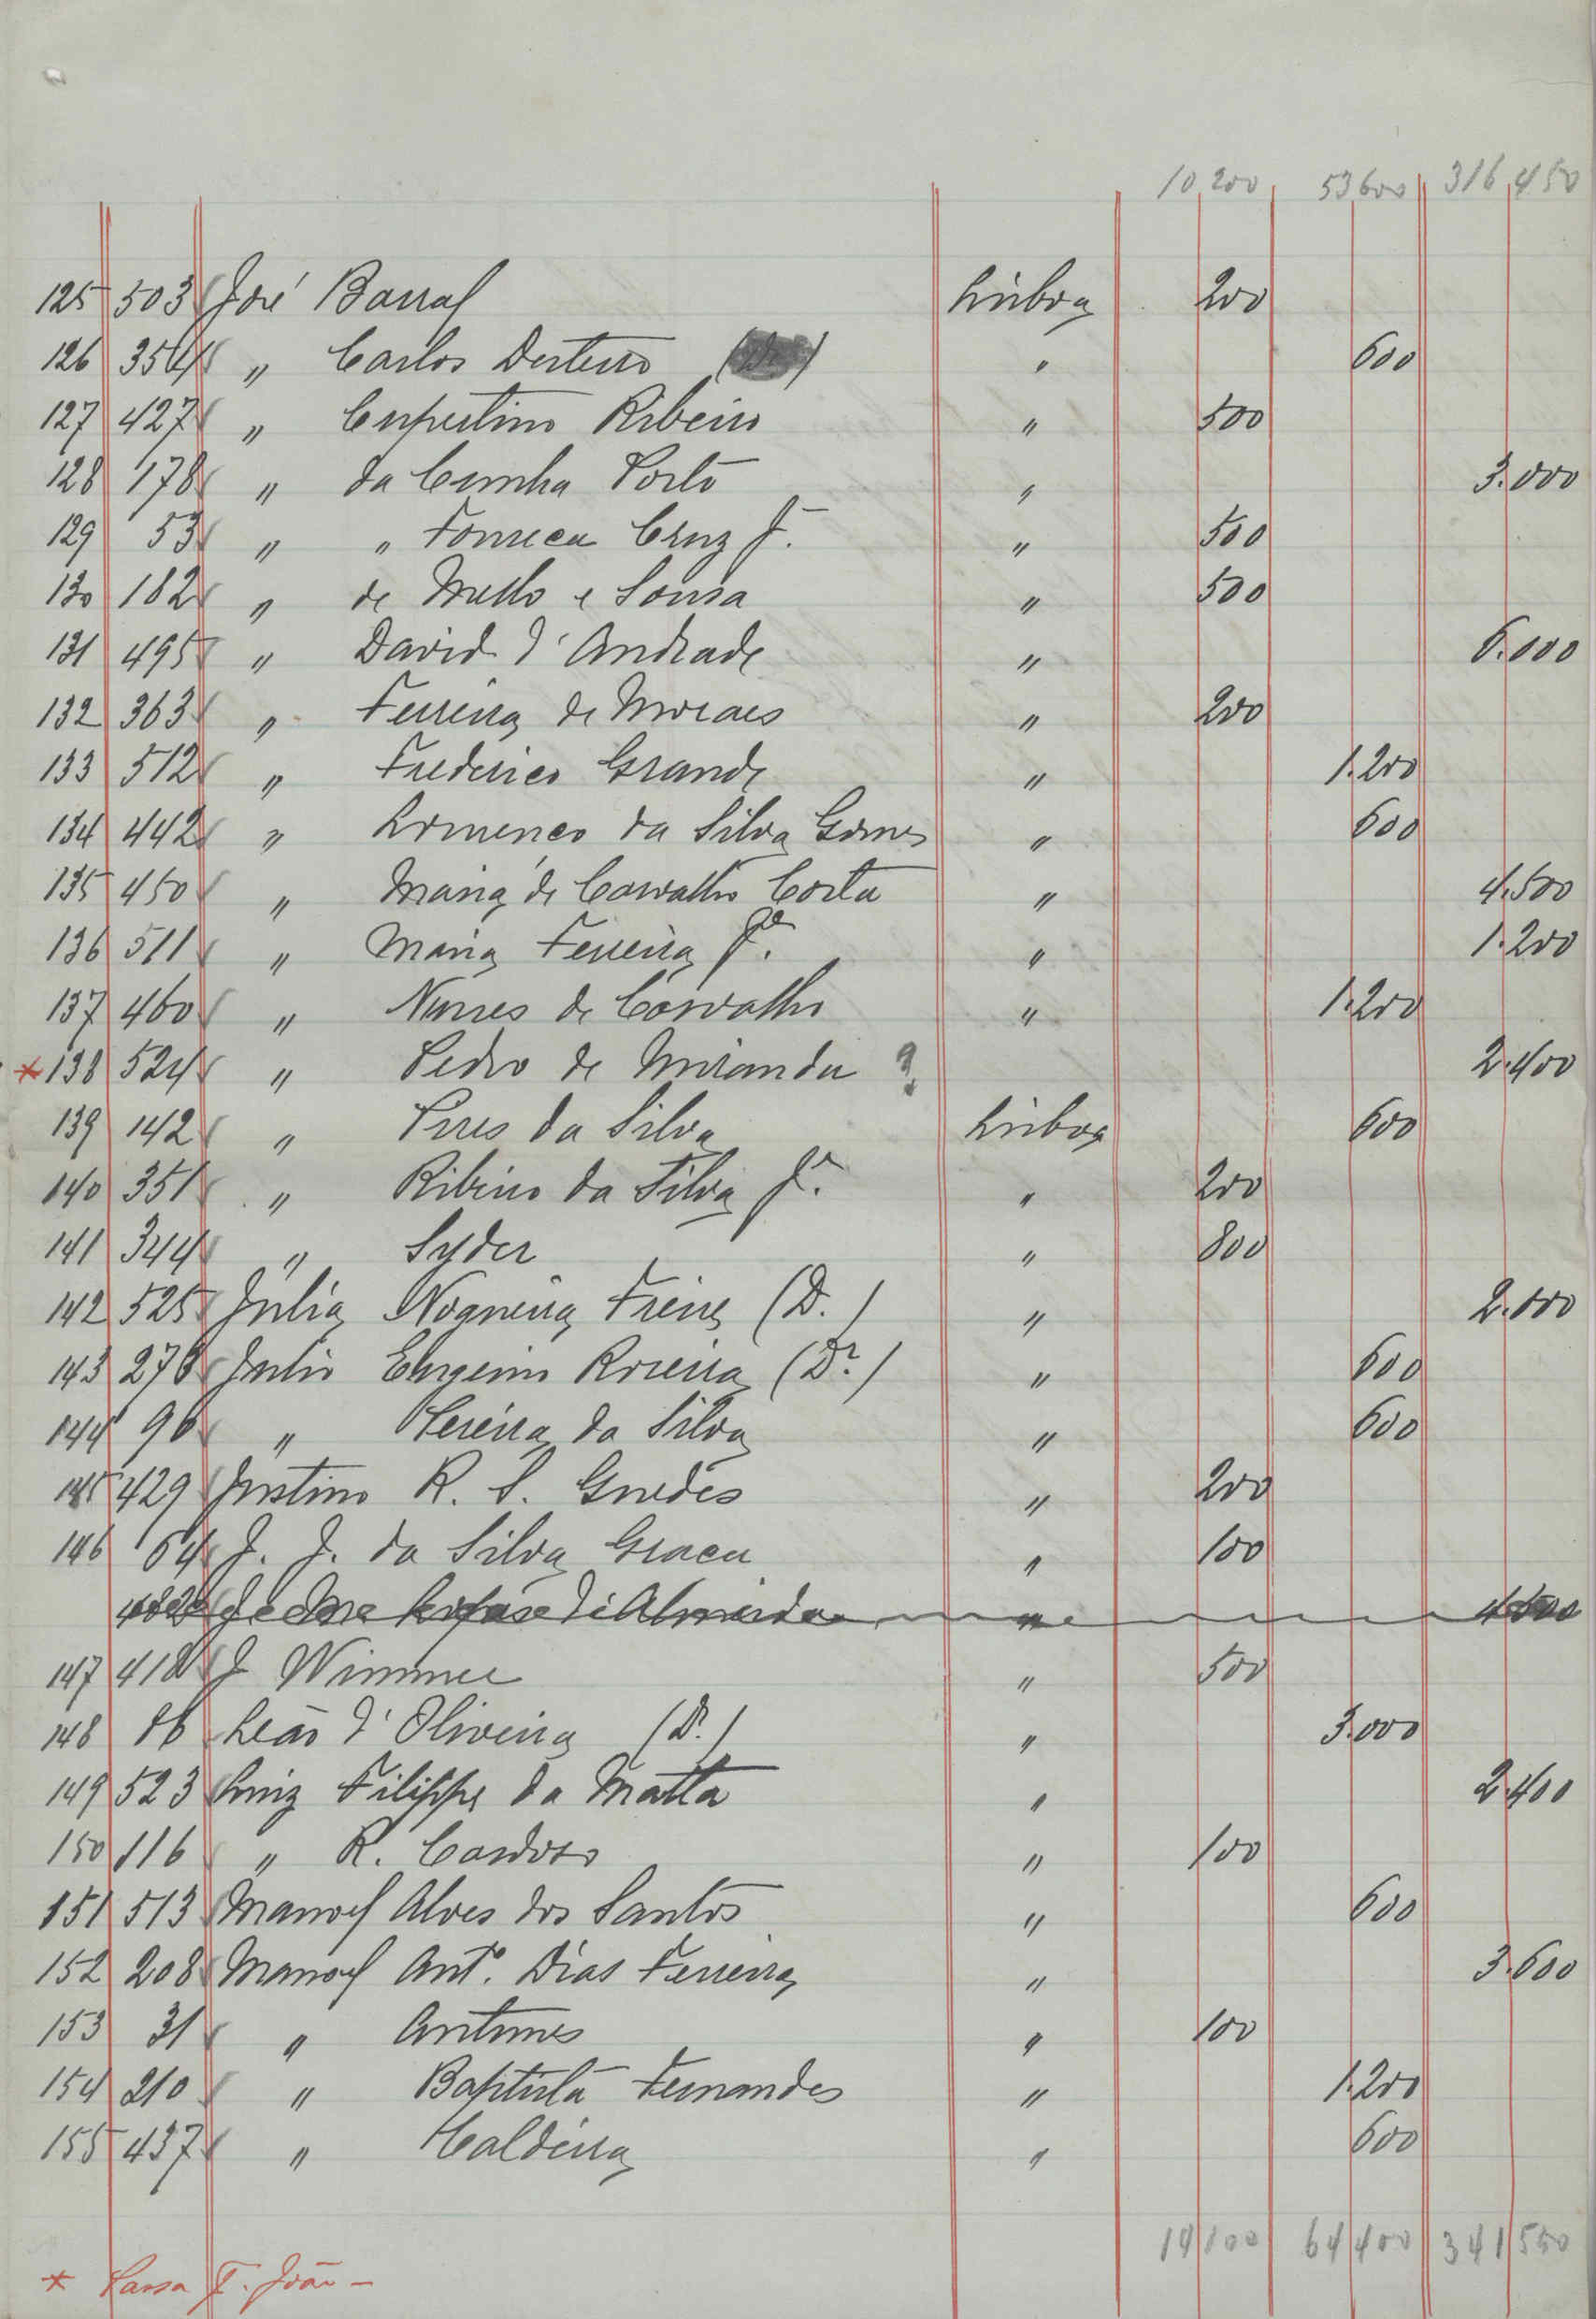 10 200 53 600 316 450
125 503 José Barral Lisboa 200
126 354 " Carlos Desterro " 600
127 427 " Cupertino Ribeiro " 500
128 178 " da Cunha Porto " 3.000
129 53 " " Fonseca Cruz Jr. " 500
130 182 " de Mello e Sousa " 500
131 495 " David d'Andrade " 6.000
132 363 " Ferreira de Moraes " 200
133 512 " Frederico Grande " 1.200
134 442 " Lourenco da Silva Gomes " 600
135 450 " Maria de Carvalho Costa " 4.500
136 511 " Maria Ferreira Jr. " 1.200
137 460 " Nunes de Carvalho " 1.200
* 138 524 " Pedro de Miranda ? 2.400
139 142 " Pires da Silva Lisboa 600
140 351 " Ribeiro da Silva Jr. " 200
141 344 " Syder " 800
142 525 Julia Nogueira Freire (D.) " 2.000
143 276 Julio Eugenio Roseira (Dr.) " 600
144 96 " Pereira da Silva " 600
145 429 Justino R. S. Guedes " 200
146 64 J. J. da Silva Graca " 100
482 d'Almeida "
147 418 J Wimmer " 500
148 86 Leão d'Oliveira (Dr.) " 3.000
149 523 Luiz Filippe da Matta " 2.400
150 116 " R. Cardoso " 100
151 513 Manoel Alves dos Santos " 600
152 208 Manoel Antº. Dias Ferreira " 3.600
153 31 " Antunes " 100
154 210 " Baptista Fernandes " 1.200
155 437 " Caldeira " 600
14 100 64 400 341 550
* Passa F. João —